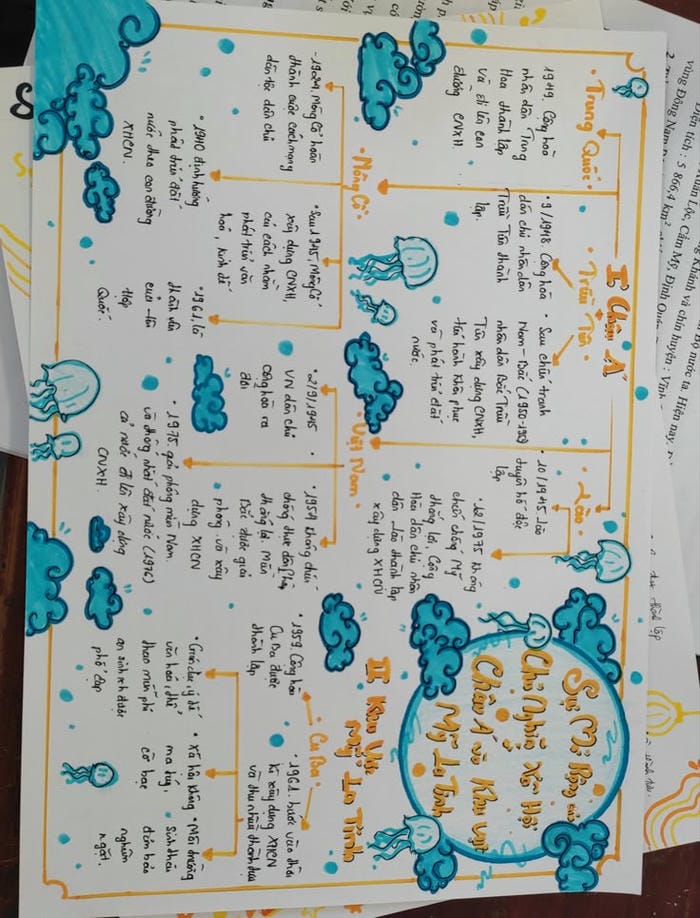 Sự Mở Rộng của
Chủ Nghĩa Xã Hội
Châu Á và Khu vực
Mỹ La Tinh
I: Châu Á
• Trung Quốc •
1949. Cộng hoà
nhân dân Trung
Hoa thành lập
và đi lên con
đường CNXH.
• Triều Tiên •
• 9/1948. Cộng hoà
dân chủ nhân dân
Triều Tiên thành
lập.
• Sau chiến tranh
Nam - Bắc (1950-1953)
nhân dân Bắc Triều
Tiên xây dựng CNXH,
tiến hành khôi phục
và phát triển đất
nước.
• Lào •
• 10/1945. Lào
tuyên bố độc
lập
• 12/1975 kháng
chiến chống Mỹ
thắng lợi, Cộng
Hoà dân chủ nhân
dân Lào thành lập
xây dựng XHCN
• Mông Cổ •
- 1924. Mông Cổ hoàn
thành cuộc cách mạng
dân tộc dân chủ
• 1940 định hướng
phát triển đất
nước theo con đường
XHCN.
• Sau 1945, Mông Cổ
xây dựng CNXH,
cải cách nhằm
phát triển văn
hoá, kinh tế
• 1961. là
thành viên
của
Liên
Hợp
Quốc.
• Việt Nam •
• 2/9/1945
VN dân chủ
cộng hoà ra
đời
• 1954 kháng chiến
chống thực dân Pháp
thắng lợi. Miền
Bắc được giải
phóng. và xây
dựng XHCN
• 1975. giải phóng miền Nam.
và thống nhất đất nước (1976)
cả nước đi lên xây dựng
CNXH.
II: Khu Vực
Mỹ La Tinh
• Cu Ba •
• 1959. Cộng hoà
Cu Ba được
thành lập
• 1961. bước vào thời
kì xây dựng XHCN
và thu nhiều thành tựu
• Giáo dục, y tế
văn hoá, thể
thao miễn phí
an sinh xh được
phổ cập
• Xã hội không
ma túy,
cờ bạc
• Môi trường
Sinh thái
đảm bảo
nghiêm
ngặt.